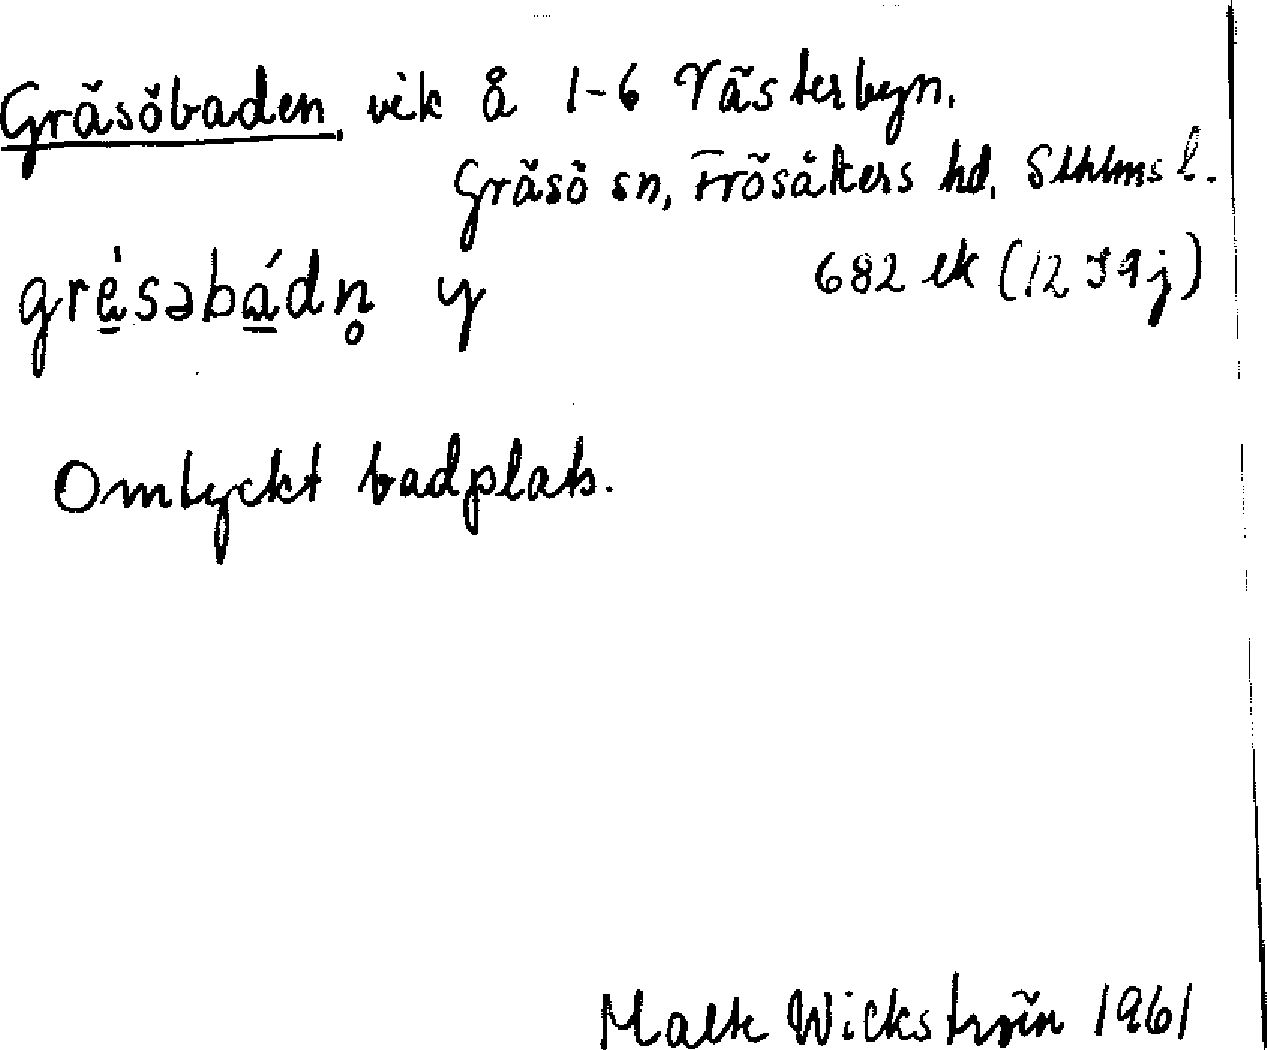 Gräsöbaden, vik å 1-6 Västerbyn.
Gräsö sn, Frösåkers hd, Sthlms l.
grèsəbádn̥ y 682 ek (12I 9j)
Omtyckt badplats.
Wickström 1961